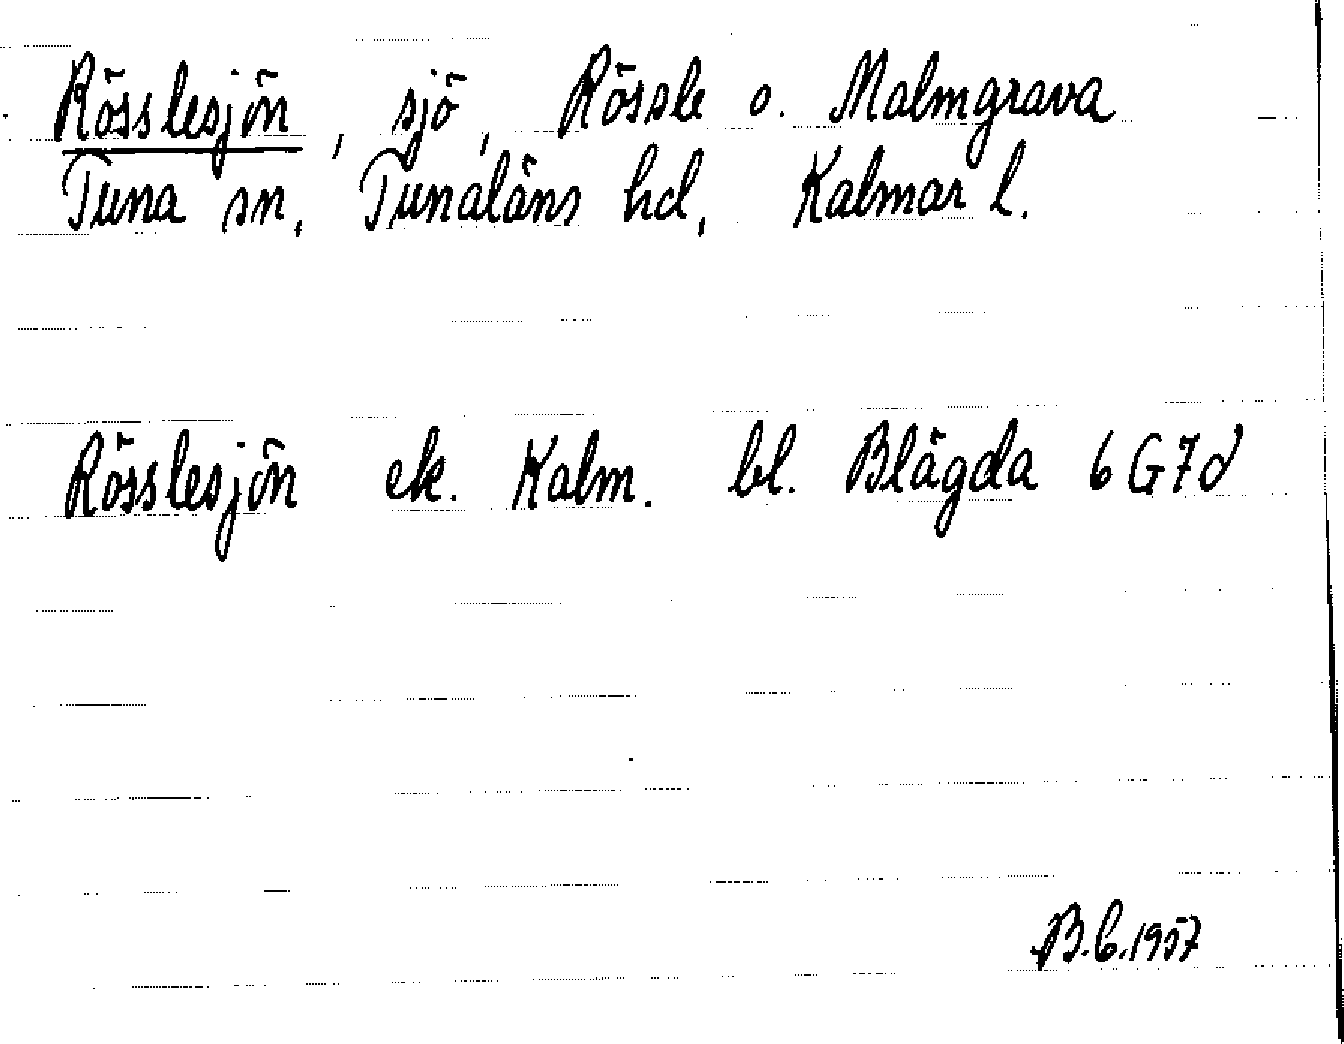 Rösslesjön, sjö, Rössle o. Malmgrava
Tuna sn, Tunaläns hd, Kalmar l.
Rösslesjön ek. Kalm. bl. Blägda 6G7d
B.C.1957